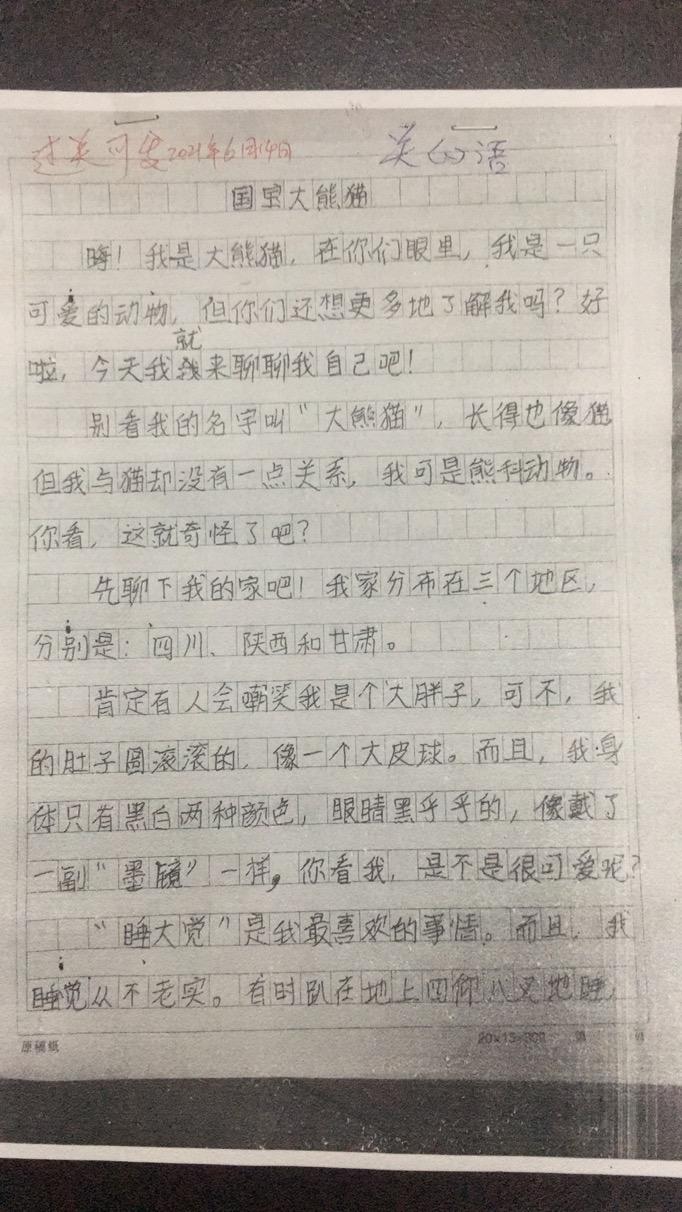 过关可发2021年6月14日
国宝大熊猫
嗨！我是大熊猫，在你们眼里，我是一只
可爱的动物，但你们还想更多地了解我吗？好
就
啦，今天我来聊聊我自己吧！
别看我的名字叫“大熊猫”，长得也像猫
但我与猫却没有一点关系，我可是熊科动物。
你看，这就奇怪了吧？
先聊下我的家吧！我家分布在三个地区，
分别是：四川、陕西和甘肃。
肯定有人会嘲笑我是个大胖子，可不，我
的肚子圆滚滚的，像一个大皮球。而且，我身
体只有黑白两种颜色，眼睛黑乎乎的，像戴了
一副“墨镜”一样，你看我，是不是很可爱呢？
“睡大觉”是我最喜欢的事情。而且，我
睡觉从不老实。有时趴在地上四仰八叉地睡，
原稿纸
20×15=300